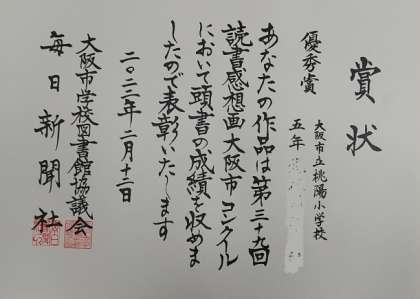 賞状
優秀賞
大阪市立桃陽小学校
五年
あなたの作品は第三十九回
読書感想画大阪市コンクール
において頭書の成績を収めま
したので表彰いたします
二〇二二年二月十二日
大阪市学校図書館協議会
毎日新聞社